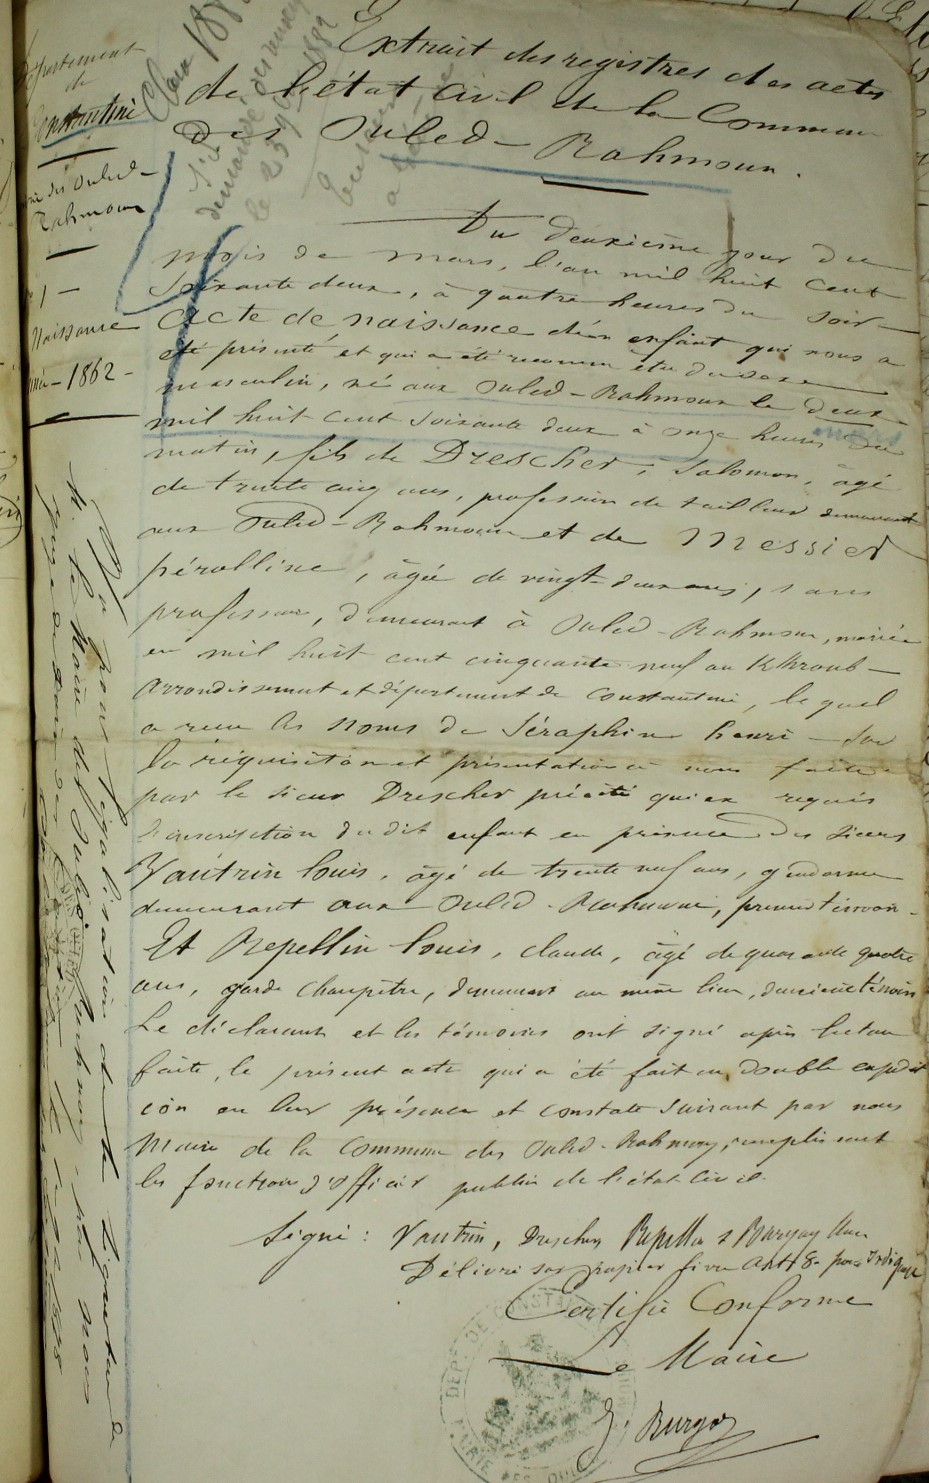 Département
de
Constantine
des Ouled-
Rahmoun
1 -
Naissance
- 1862 -
Classe
demandé
le 23 1882
Extrait des registres des actes
de l'état civil de la Commune
des Ouled-
Rahmoun.
Du deuxième jour du
mois de mars, l'an mil huit cent
soixante deux, à quatre heures du soir -
Acte de naissance d'un enfant qui nous a
été présenté et qui a été reconnu être du sexe
masculin, né aux Ouled-Rahmoun le deux
mars
mil huit cent soixante deux à onze heures du
matin, fils de Drescher, Salomon, âgé
de trente cinq ans, profession de tailleur demeurant
aux Ouled-Rahmoun et de Messier
pérolline, âgée de vingt-deux ans, sans
profession, demeurant à Ouled-Rahmoun, mariés
en mil huit cent cinquante neuf au Khroub -
Arrondissement et département de Constantine, lequel
a reçu les noms de Séraphin henri - sur
la réquisition et présentation à nous faite
par le sieur Drescher précité qui en requis
l'inscription du dit enfant en présence des sieurs
Vautrin louis, âgé de trente neuf ans, gendarme
demeurant aux Ouled-Rahmoun, premier témoin -
Et Repellin louis, claude, âgé de quarante quatre
ans, garde champêtre, demeurant au même lieu, deuxième témoin
Le déclarant et les témoins ont signé après lecture
faite, le présent acte qui a été fait en double expédit
ion en leur présence et constaté suivant par nous
Maire de la Commune des Ouled-Rahmoun, remplissant
les fonctions d'officier public de l'état civil.
Signé : Vautrin, Drescher, Repellin & Burgay Maire
Délivré sur papier libre
Certifié Conforme
Le Maire
J. Burgay
Vu pour légalisation de la signature de
M. le Maire des Ouled-Rahmoun - par nous
juge de paix
DEPT DE CONSTANTINE
MAIRIE DES OULED